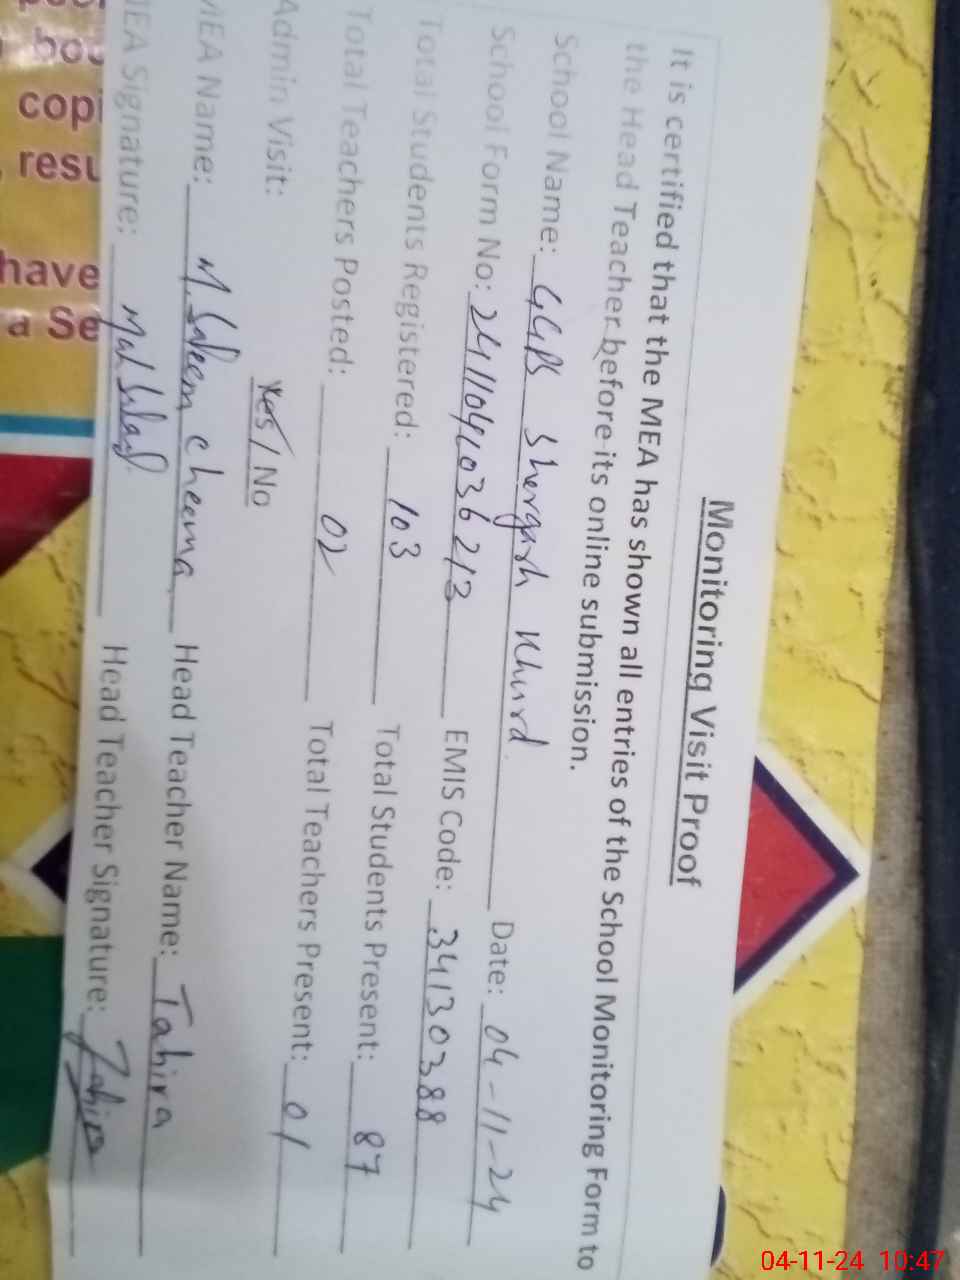 Monitoring Visit Proof
It is certified that the MEA has shown all entries of the School Monitoring Form to
the Head Teacher before its online submission.
School Name: GGPS Shergarh Khurd Date: 04-11-24
School Form No: 2411041036213 EMIS Code: 34130388
Total Students Registered: 103 Total Students Present: 87
Total Teachers Posted: 02 Total Teachers Present: 01
Admin Visit: Yes / No
MEA Name: M Saleem cheema Head Teacher Name: Tahira
MEA Signature: Head Teacher Signature: Tahira
copi
resu
have
a Se
04-11-24 10:47